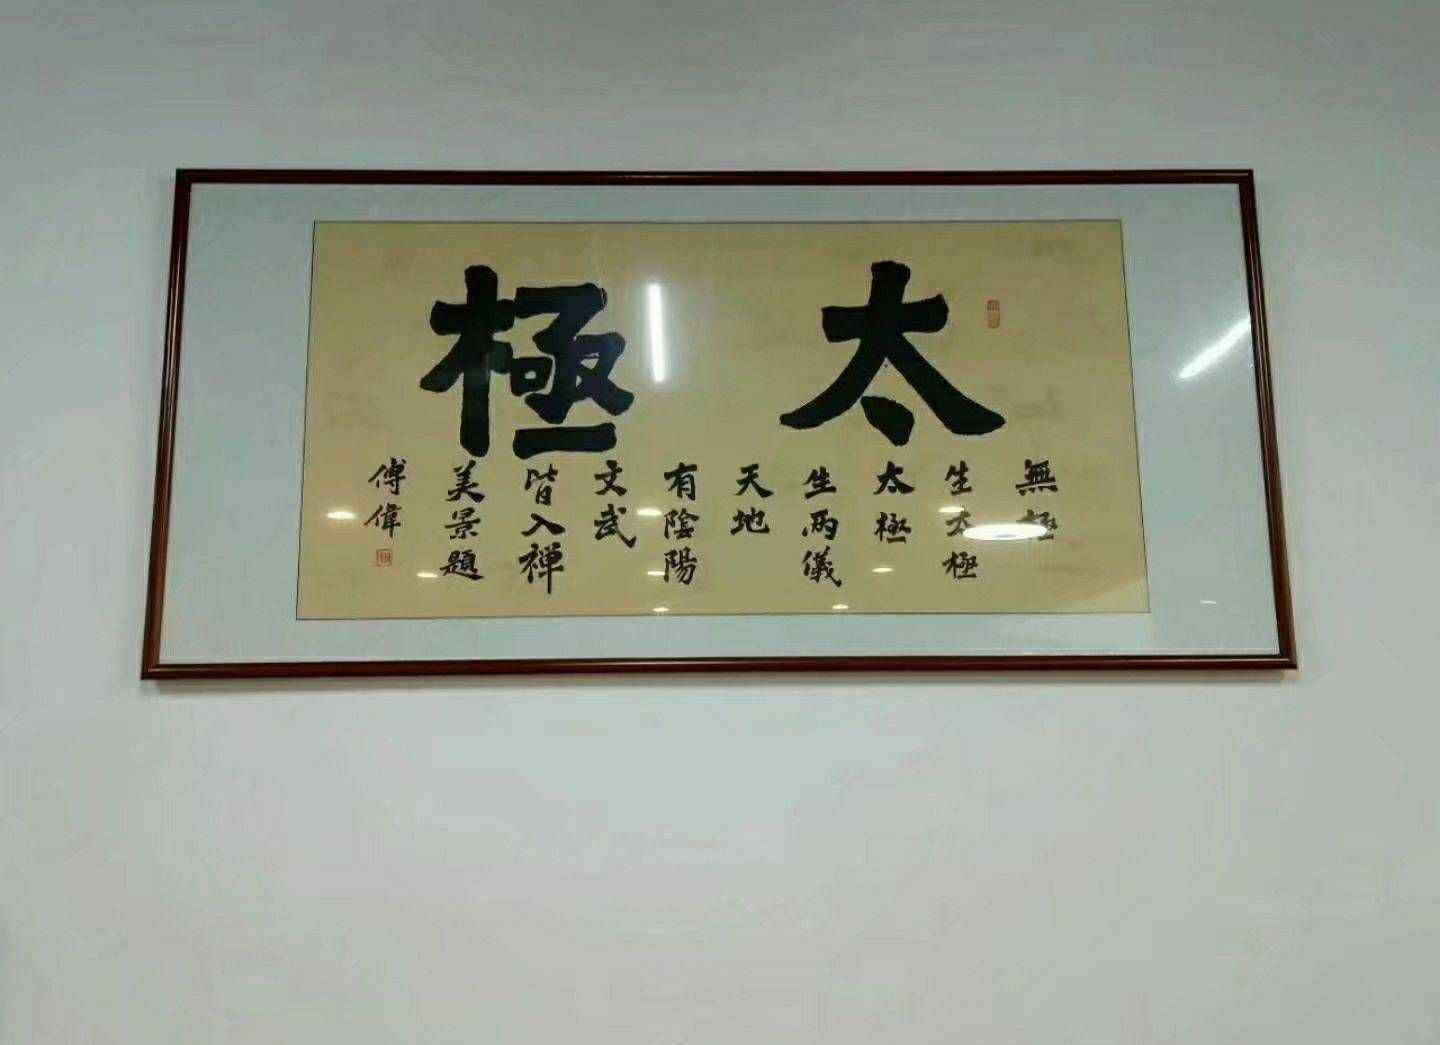 太極
無極
生太極
太極
生兩儀
天地
有陰陽
文武
皆入禪
美景題
傅偉